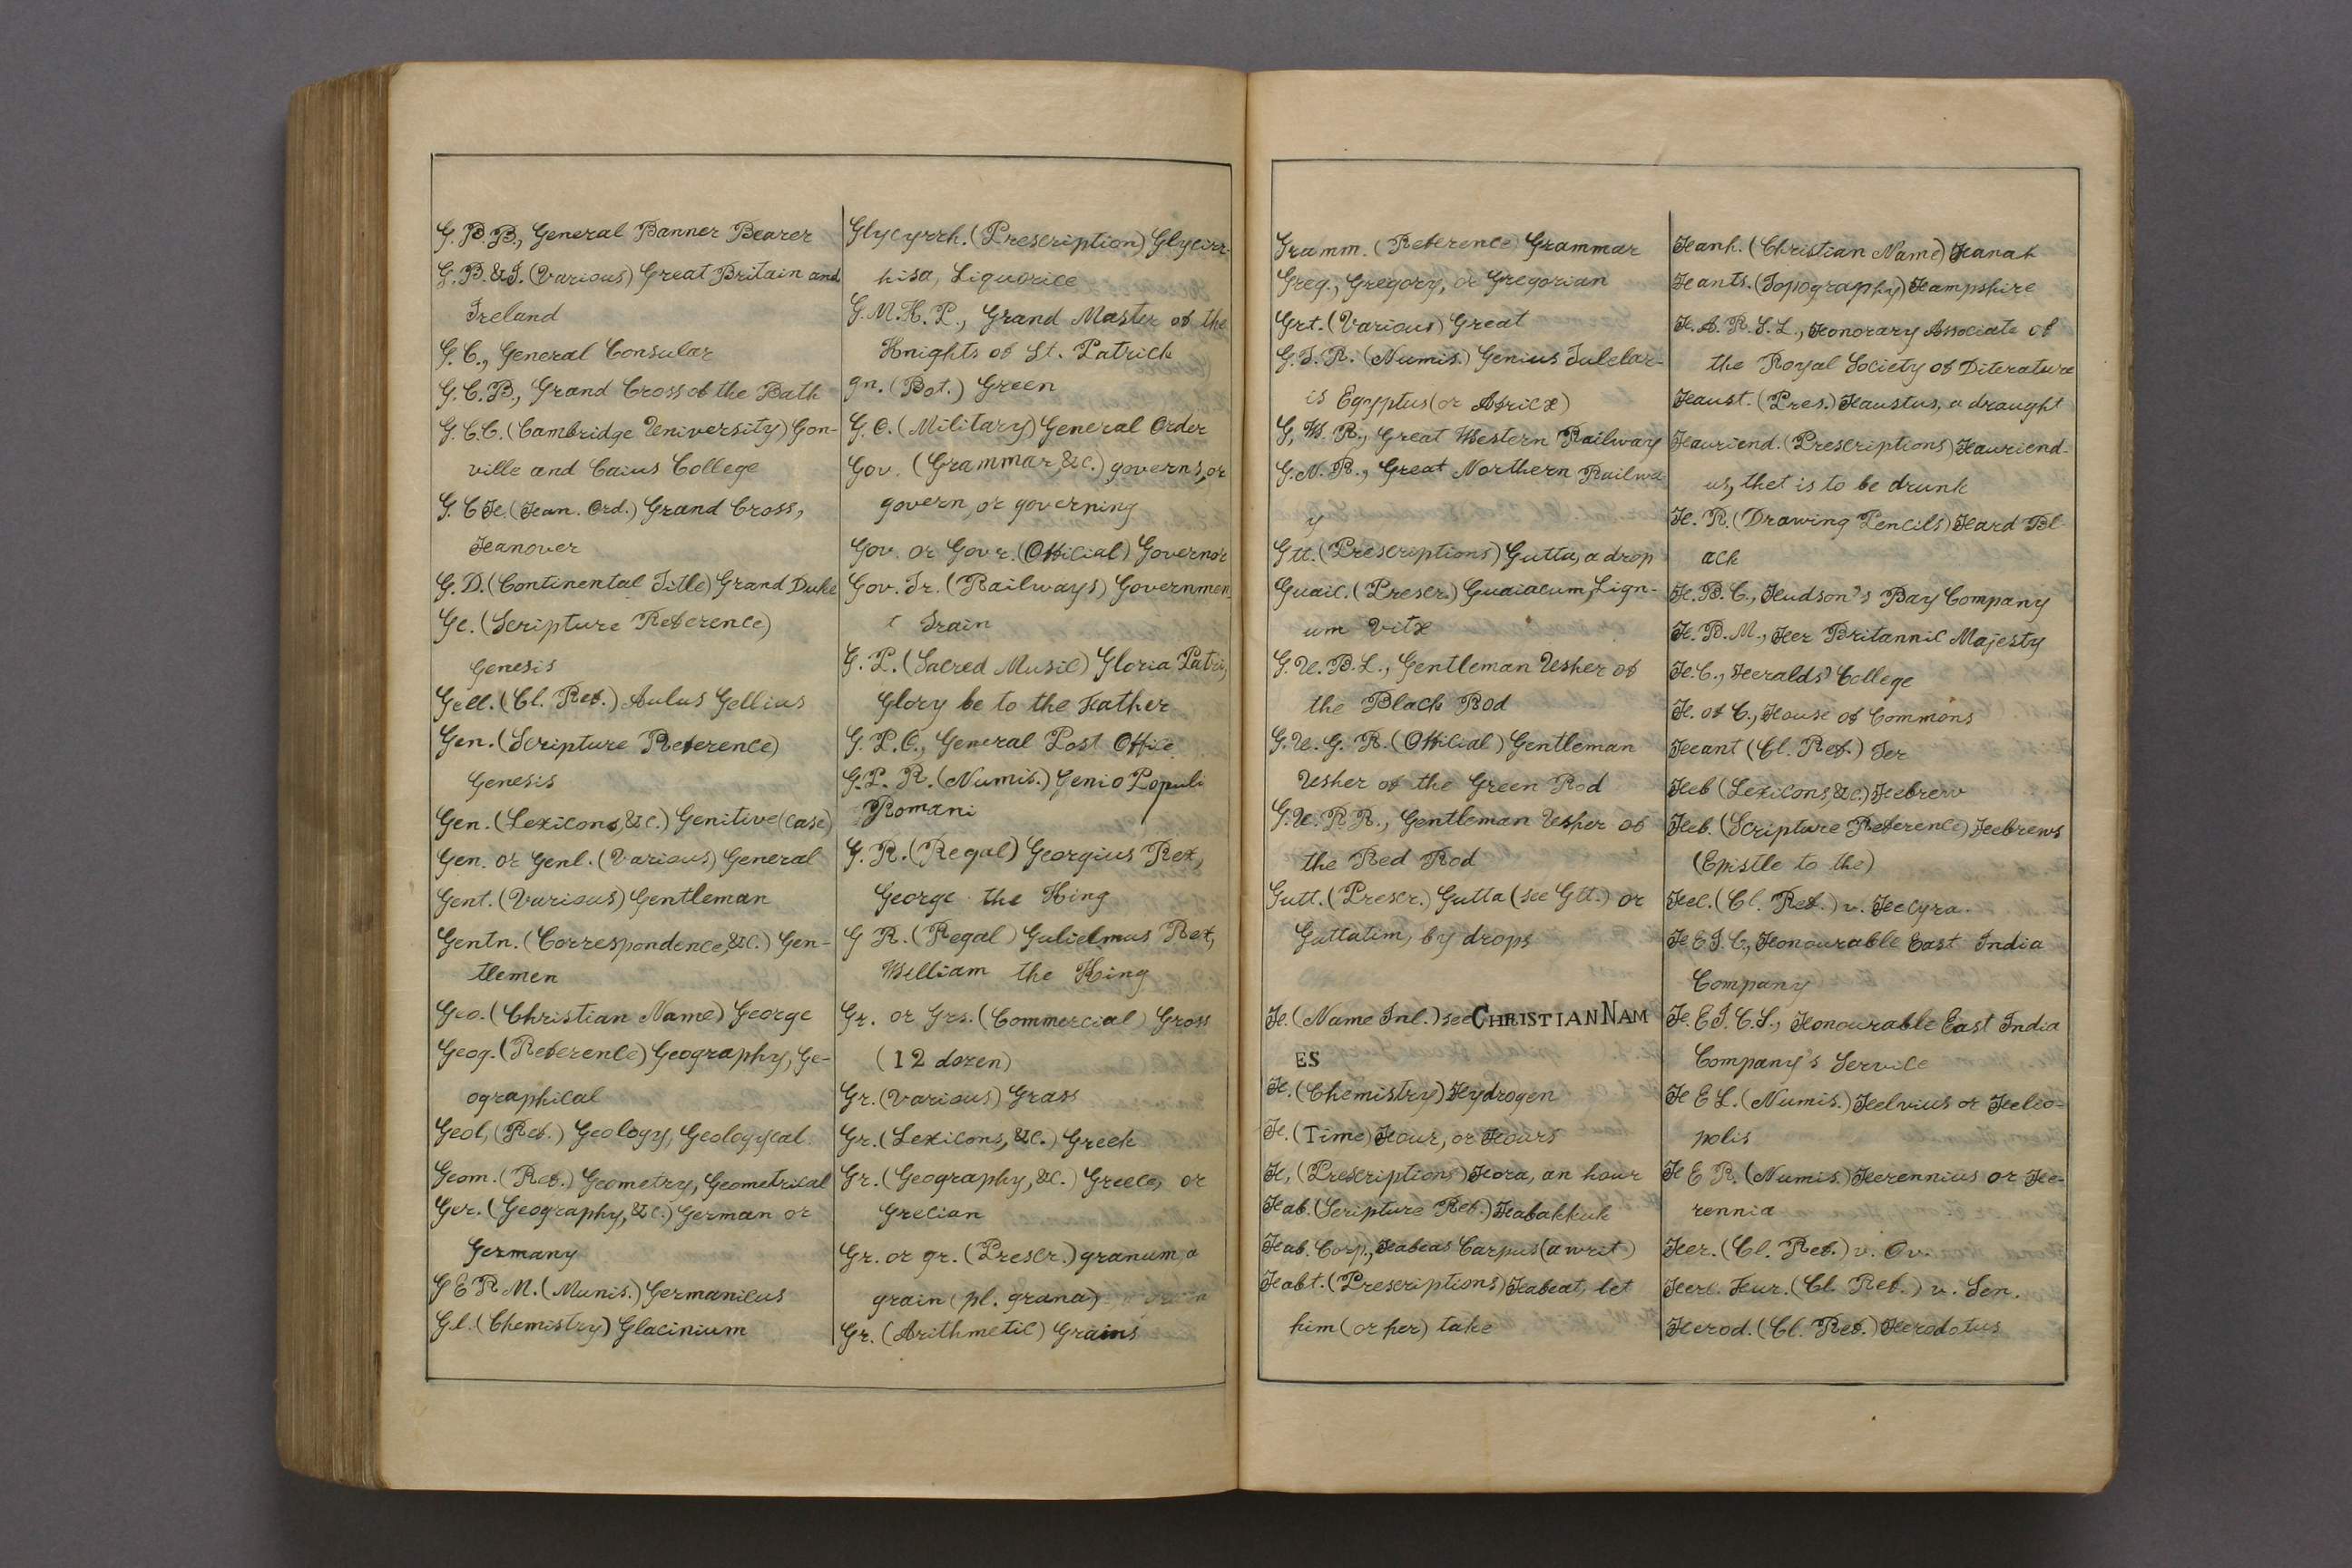 G. B. B., General Banner Bearer
G. B. & I. (Various) Great Britain and
Ireland
G. C., General Consular
G. C. B., Grand Cross of the Bath
G. C. C. (Cambridge University) Gon-
ville and Caius College
G. C H. (Han. Ord.) Grand Cross,
Hanover
G. D. (Continental Title) Grand Duke
Ge. (Scripture Reference)
Genesis
Gell. (Cl. Ref.) Aulus Gellius
Gen. (Scripture Reference)
Genesis
Gen. (Lexicons, &c.) Genitive (case)
Gen. or Genl. (Various) General
Gent. (Various) Gentleman
Gentn. (Correspondence, &c.) Gen-
tlemen
Geo. (Christian Name) George
Geog. (Reference) Geography, Ge-
ographical
Geol, (Ref.) Geology, Geologycal
Geom. (Ref.) Geometry, Geometrical
Ger. (Geography, &c.) German or
Germany
G E R M. (Munis.) Germanicus
Gl. (Chemistry) Glacinium
Glycyrrh. (Prescription) Glycirr-
hisa, Liquorice
G. M. K. P., Grand Master of the
Knights of St. Patrick
gn. (Bot.) Green
G. O. (Military) General Order
Gov. (Grammar, &c.) governs, or
govern, or governing
Gov. or Govr. (Official) Governor
Gov. Tr. (Railways) Governmen
t Train
G. P. (Sacred Music) Gloria Patri,
Glory be to the Father
G. P. O., General Post Office
G. P. R. (Numis.) Genio Populi
Romani
G. R. (Regal) Georgius Rex,
George the King
G R. (Regal) Gulielmus Rex,
William the King
Gr. or Grs. (Commercial) Gross
(12 dozen)
Gr. (Various) Grass
Gr. (Lexicons, &c.) Greek
Gr. (Geography, &c.) Greece, or
Grecian
Gr. or gr. (Prescr.) granum, a
grain (pl. grana)
Gr. (Arithmetic) Grains
Gramm. (Reference) Grammar
Greg., Gregory, or Gregorian
Grt. (Various) Great
G. T. R. (Numis.) Genius Tulelar-
is Egyptus (or Africæ)
G, W. R., Great Western Railway
G. N. R., Great Northern Railwa
y
Gtt. (Prescriptions) Gutta, a drop
Guaic. (Prescr.) Guaiacum, Lign-
um Vitæ
G. U. B. L., Gentleman Usher of
the Black Rod
G. U. G. R. (Official) Gentleman
Usher of the Green Rod
G. U. R R., Gentleman Usher of
the Red Rod
Gutt. (Prescr.) Gutta (see Gtt.) or
Guttatim, by drops
H. (Name Inl.) see CHRISTIAN NAM
ES
H. (Chemistry) Hydrogen
H. (Time) Hour, or Hours
H, (Prescriptions) Hora, an hour
Hab. (Scripture Ref.) Habakkuk
Hab. Corp., Habeas Carpus (a writ)
Habt. (Prescriptions) Habeat, let
him (or her) take
Hanh. (Christian Name) Hanah
Hants. (Topography) Hampshire
H. A. R. S. L., Honorary Associate of
the Royal Society of Diterature
Haust. (Pres.) Haustus, a draught
Hauriend. (Prescriptions) Hauriend-
us, thet is to be drunk
H. R. (Drawing Pencils) Hard Bl-
ack
H. B. C., Hudson's Bay Company
H. B. M., Her Britannic Majesty
H. C., Heralds' College
H. of C., House of Commons
Heant (Cl. Ref.) Ter
Heb (Lexicons, &c.) Hebrew
Heb. (Scripture Reference) Hebrews
(Epistle to the)
Hec. (Cl. Ref.) v. Hecyra.
H E I. C., Honourable East India
Company
H. E I. C. S., Honourable East India
Company's Service
H E L. (Numis.) Helvius or Helio-
polis
H E R. (Numis.) Herennius or He-
rennia
Her. (Cl. Ref.) v. Ov.
Herc. Fur. (Cl. Ref.) v. Sen.
Herod. (Cl. Ref.) Herodotus